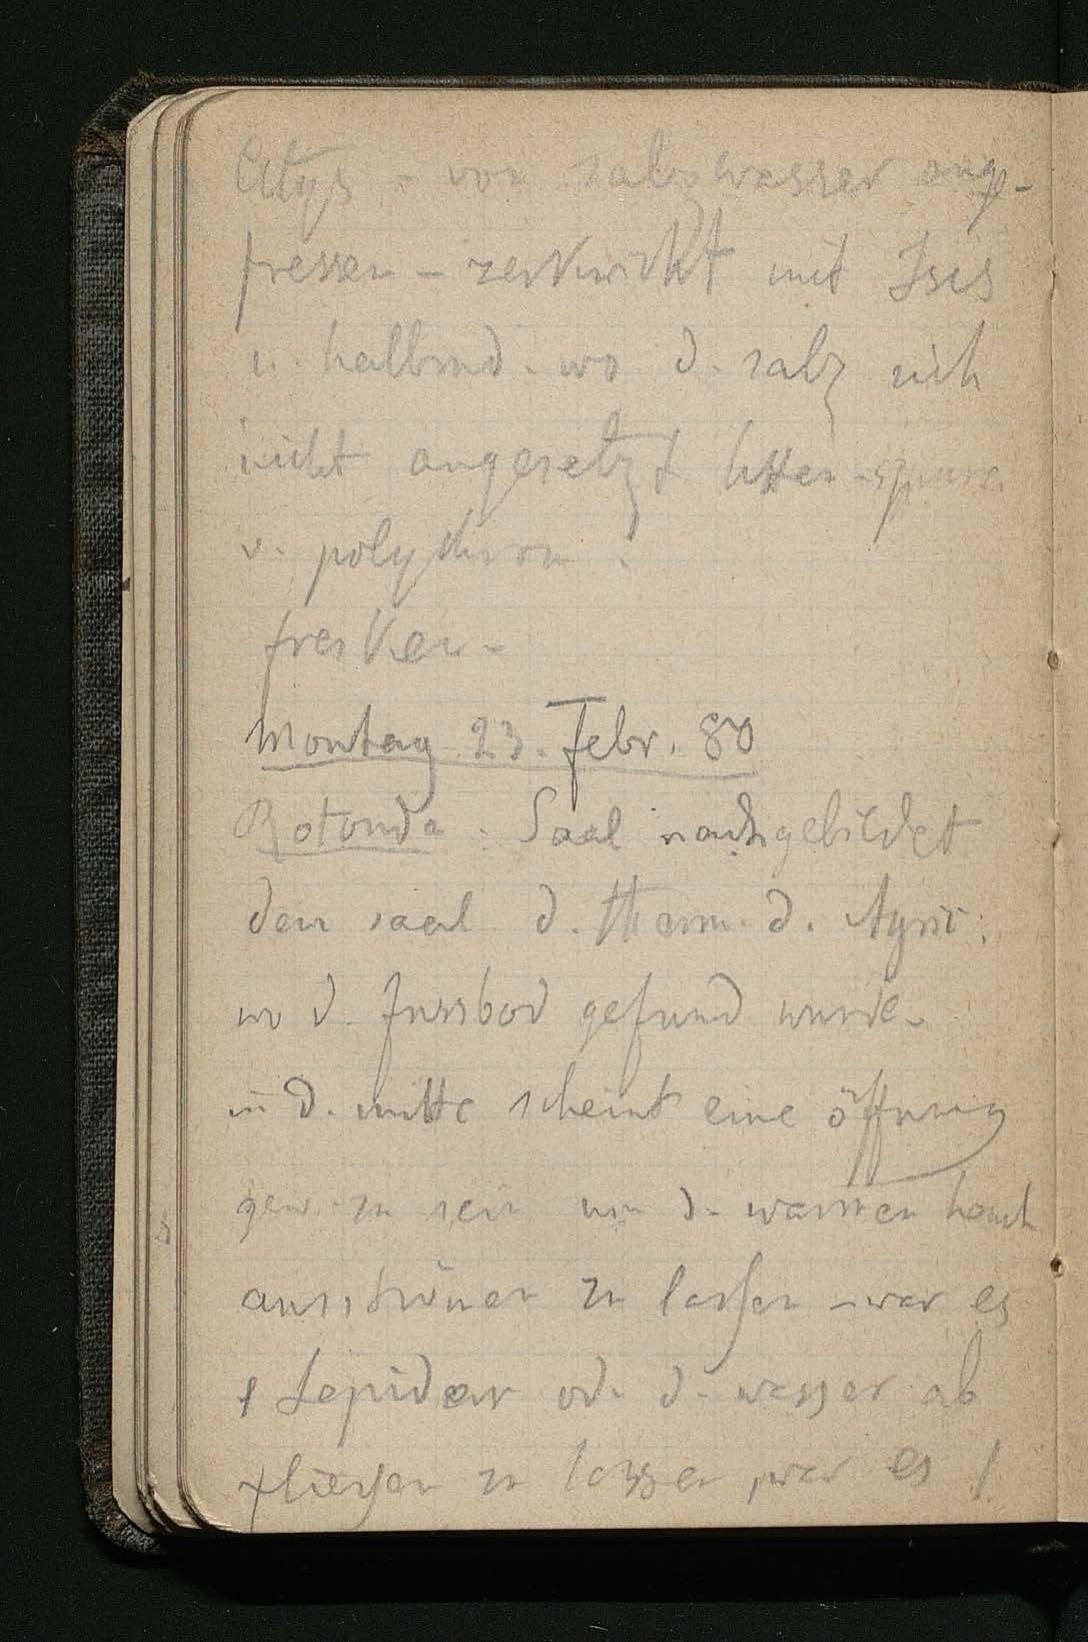 Atys – von salzwasser ange-
fressen – zerknickt mit Isis
u. halbmd. wo d. salz sich
nicht angesetzt hatten – spuren
v. polychrom.
fresken –
Montag 23. Febr. 80
Rotonda. Saal nachgebildet
dem saal d. therm. d.
wo d. fussbod gefund wurde –
in d. mitte scheint eine öffnung
gew. zu sein um d. warmen hauch
ausströmen zu lassen – war es
1 Tepidar od. d. wasser ab
fliessen zu lassen, war es 1